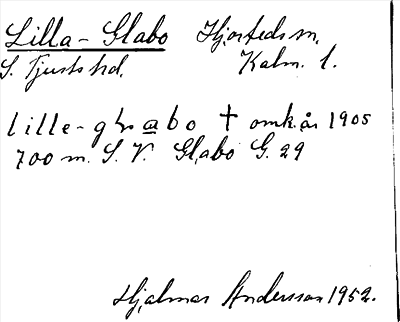 Lilla-Glabo Hjorteds sn.
S. Tjusts hd. Kalm. l.
lille-glabo † omk. år 1905
700 m. S. V. Glabo G. 29
Hjalmar Andersson 1952.